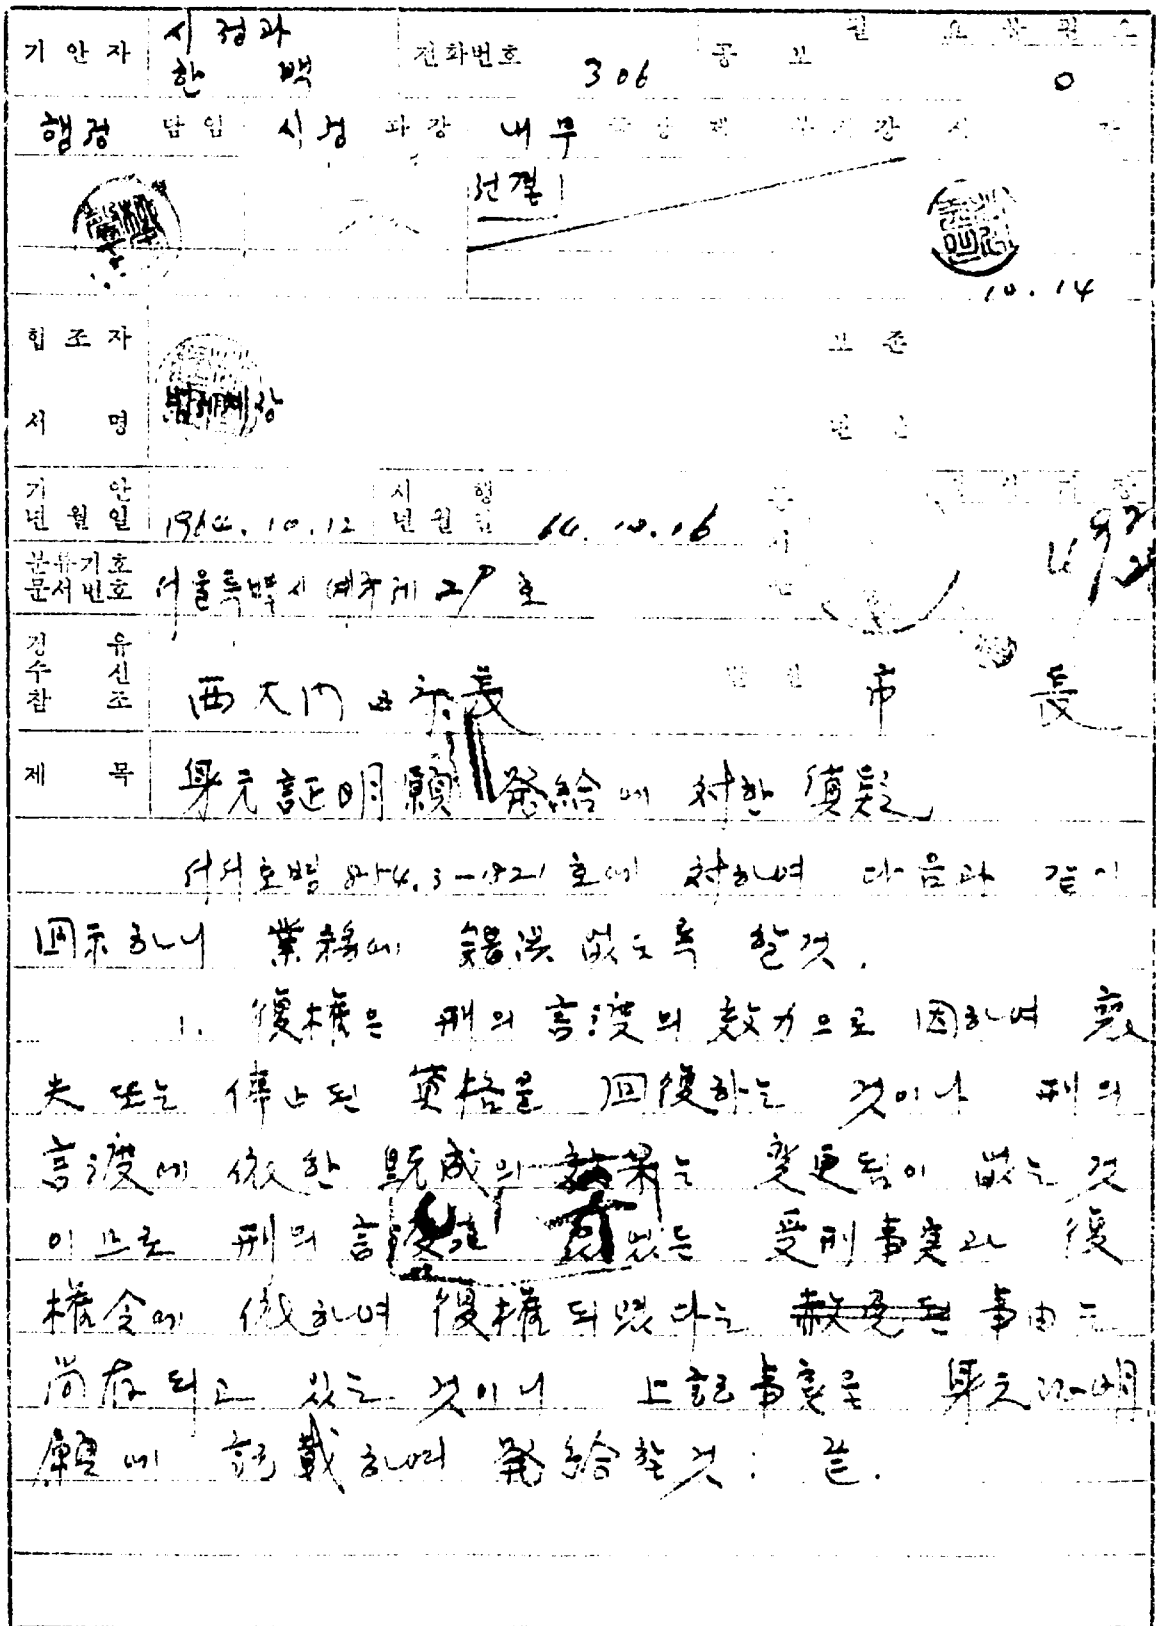 기안자 시정과 한 백 전화번호 306 공보 필요 불필요 0
행정 담임 시정 과장 내무 국장 제 부시장 시 장
전결
10.14
협조자 보존
서명 년한
기안년월일 1964.10.12 시행년월일 64.10.16
분류기호 문서번호 서울특별시 예규 제29호
경유 수신 참조 西大門區廳長 발신 市 長
제 목 身元証明願 発給에 対한 質疑
서서호병 854.3-1821 호에 対하여 다음과 같이
回示하니 業務에 錯誤 없도록 할것.
1. 復権은 刑의 言渡의 效力으로 因하여 喪
失 또는 停止된 資格을 回復하는 것이나 刑의
言渡에 依한 既成의 效果는 変更됨이 없는 것
이므로 刑의 言渡를 받았는 受刑事実과 復
権令에 依하여 復権되였다는 事由는
尚存되고 있는 것이니 上記事実을 身元証明
願에 記載하여 発給할것. 끝.